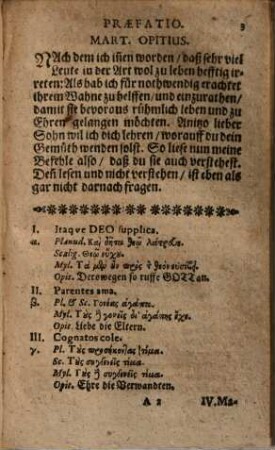 PRÆFATIO. 3
MART. OPITIUS.
NAch dem ich iñen worden / daß sehr viel
Leute in der Art wol zu leben hefftig ir-
reten: Als hab ich für nothwendig erachtet
ihrem Wahne zu helffen / und einzurathen /
damit sie bevoraus rühmlich leben und zu
Ehren gelangen möchten. Anitzo lieber
Sohn wil ich dich lehren / worauff du dein
Gemüth wenden solst. So liese nun meine
Befehle also / daß du sie auch verstehest.
Deñ lesen und nicht verstehen / ist eben als
gar nicht darnach fragen.
I. Itaque DEO supplica.
α. Planud. Καὶ θεῷ
Scalig. Θεῷ εὔχου.
Myl. Τὰ μὲν
Opit. Derowegen so ruffe GOTT an.
II. Parentes ama.
β. Pl. & Sc. Γονέας ἀγάπα.
Myl. Τοὺς γονεῖς δι' ἀγάπης ἔχε.
Opit. Liebe die Eltern.
III. Cognatos cole.
γ. Pl. Τοὺς προσήκοντας τίμα.
Sc. Τοὺς συγγενεῖς τίμα.
Myl. Τοὺς συγγενεῖς τίμα.
Opit. Ehre die Verwandten.
A 2 IV. Ma-